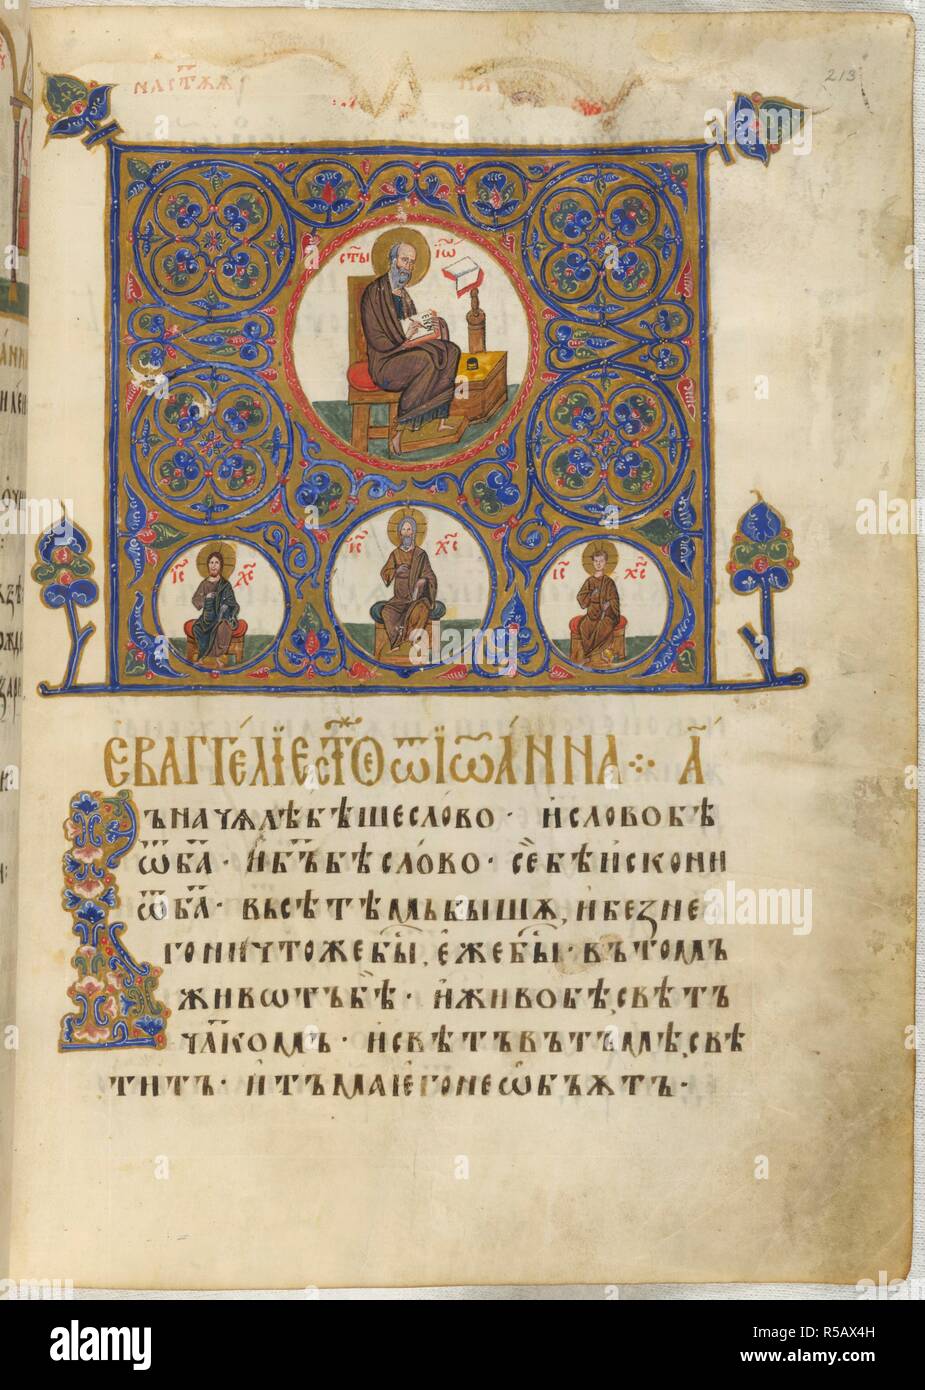 213
с҃ты їѡ҃
і҃с х҃с
і҃с х҃с
і҃с х҃с
ЄВАГГЕ́ЛЇЕ СТ҃ОЄ ѾЇѠА́ННА ⁘ А҃
Въначѧлѣбѣшесло́во · и҆словобѣ
ѿба҃ · и҆бъ҃бѣсло́во · се҆бѣи҆скони
ѿба҃ · вьсѣтѣмьбышѧ, и҆безне
гоничтожебы, е҆жебы · вътомъ
животъбѣ · и҆живобѣсвѣтъ
чл҃комъ · и҆свѣтъвътъмѣ,свѣ
титъ · и҆тъмаѥгонеѡбъѧтъ ·
alamy
Image ID: R5XX4H
www.alamy.com